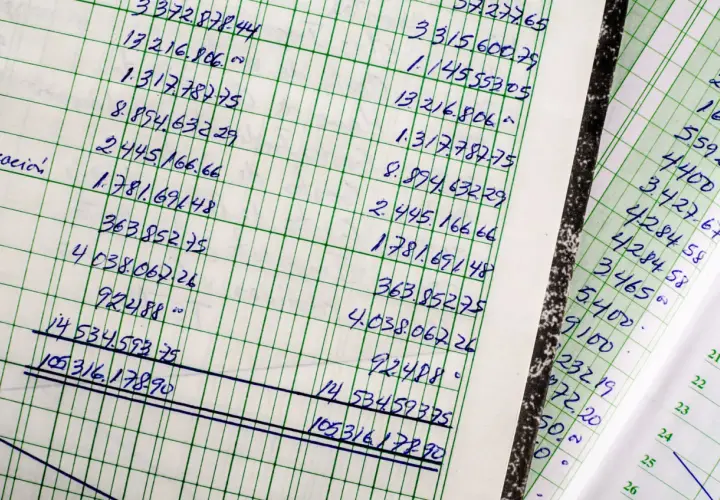 3 372 878.44
13 216.806.00
1.317.787.75
8.894.632.29
2.445.166.66
1.781.691.48
363.852.75
4 038.067.26
92488 00
14 534.593.75
105316.178.90
57277.65
3315600.79
1.145553.05
13216.806.00
1.317.787.75
8.894.632.29
2.445.166.66
1781.691.48
363.852.75
4.038.067.26
92488
14 534.593.75
105316.178.90
5592
4400
3427.67
4284.58
4284.58
3465 00
5.400.
9100.
232.19
972.20
50.00
22
23
24
25
26